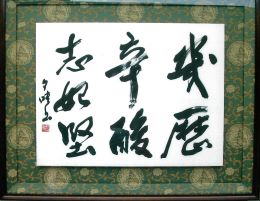 幾歴
辛酸
志始堅